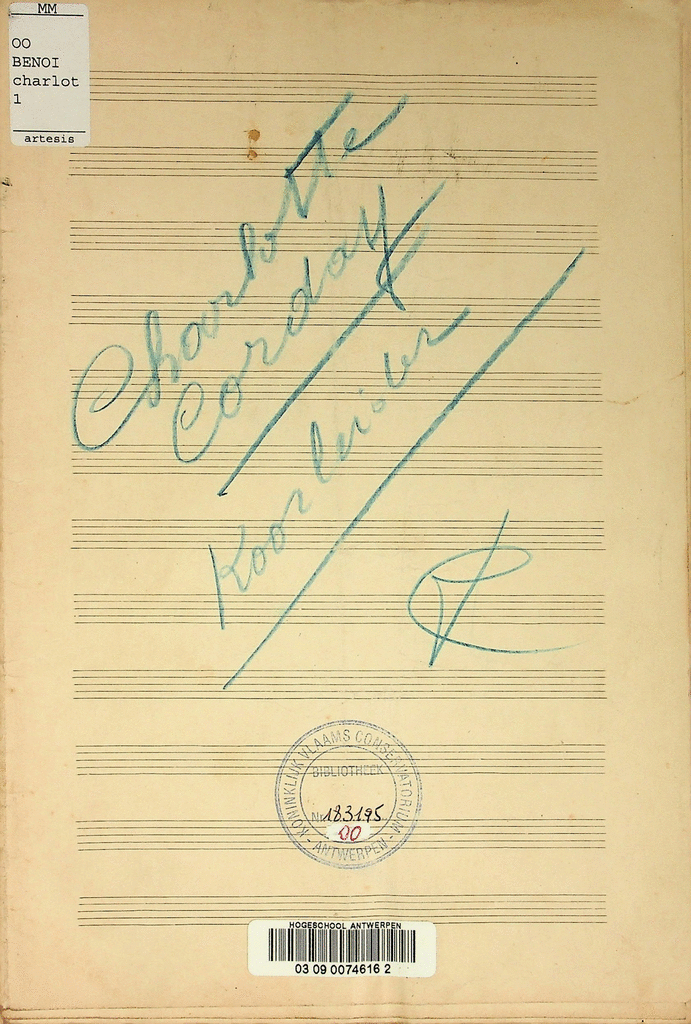 MM
OO
BENOI
charlot
1
artesis
Charlotte
Corday
Koorleider
KONINKLIJK VLAAMS CONSERVATORIUM
- ANTWERPEN -
BIBLIOTHEEK
Nr 183.195
OO
HOGESCHOOL ANTWERPEN
03 09 0074616 2